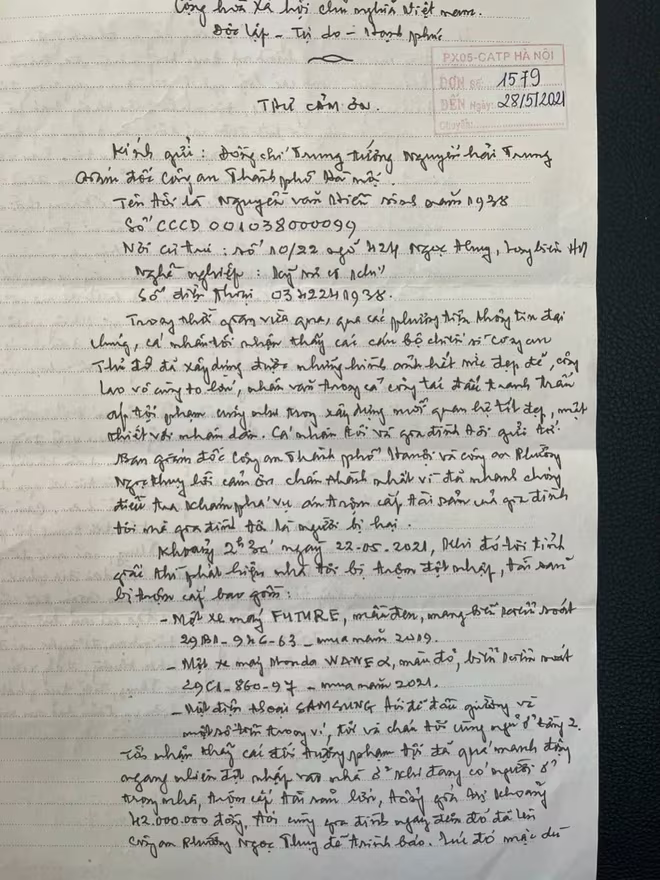 Cộng hòa xã hội chủ nghĩa Việt Nam.
Độc lập - Tự do - Hạnh phúc
PX05-CATP HÀ NỘI
ĐƠN SỐ: 1579
ĐẾN Ngày: 28/5/2021
Chuyển:
THƯ CẢM ƠN.
Kính gửi: Đồng chí Trung tướng Nguyễn Hải Trung
Giám đốc Công an Thành phố Hà Nội.
Tên tôi là Nguyễn Văn Hiểu sinh năm 1938
Số CCCD 001038000099
Nơi cư trú: số 10/22 ngõ 424 Ngọc Thụy, Long biên HN
Nghề nghiệp:
Số điện thoại 0342241938.
Trong thời gian vừa qua, qua các phương tiện thông tin đại
chúng, cá nhân tôi nhận thấy các cán bộ chiến sĩ công an
Thủ đô đã xây dựng được những hình ảnh hết sức đẹp đẽ, công
lao vô cùng to lớn, nhân văn trong cả công tác đấu tranh trấn
áp tội phạm cũng như trong xây dựng mối quan hệ tốt đẹp, mật
thiết với nhân dân. Cá nhân tôi và gia đình tôi gửi tới
Ban giám đốc Công an Thành phố Hà Nội và công an Phường
Ngọc Thụy lời cảm ơn chân thành nhất vì đã nhanh chóng
điều tra khám phá vụ án trộm cắp tài sản của gia đình
tôi mà gia đình tôi là người bị hại.
Khoảng 2h30' ngày 22-05-2021, khi đó tôi tỉnh
giấc thì phát hiện nhà tôi bị trộm đột nhập, tài sản
bị trộm cắp bao gồm:
- Một xe máy FUTURE, màu đen, mang biển kiểm soát
29B1-946-63 - mua năm 2019.
- Một xe máy Honda WAVE α, màu đỏ, biển kiểm soát
29C1-860-97 - mua năm 2021.
- Một điện thoại SAMSUNG tôi để đầu giường và
một số tiền trong ví, tôi và cháu tôi cùng ngủ ở tầng 2.
Tôi nhận thấy các đối tượng phạm tội đã quá manh động
ngang nhiên đột nhập vào nhà ở khi đang có người ở
trong nhà, trộm cắp tài sản lớn, tổng giá trị khoảng
42.000.000 đồng, tôi cùng gia đình ngay đêm đó đã lên
công an Phường Ngọc Thụy để trình báo. Lúc đó mặc dù